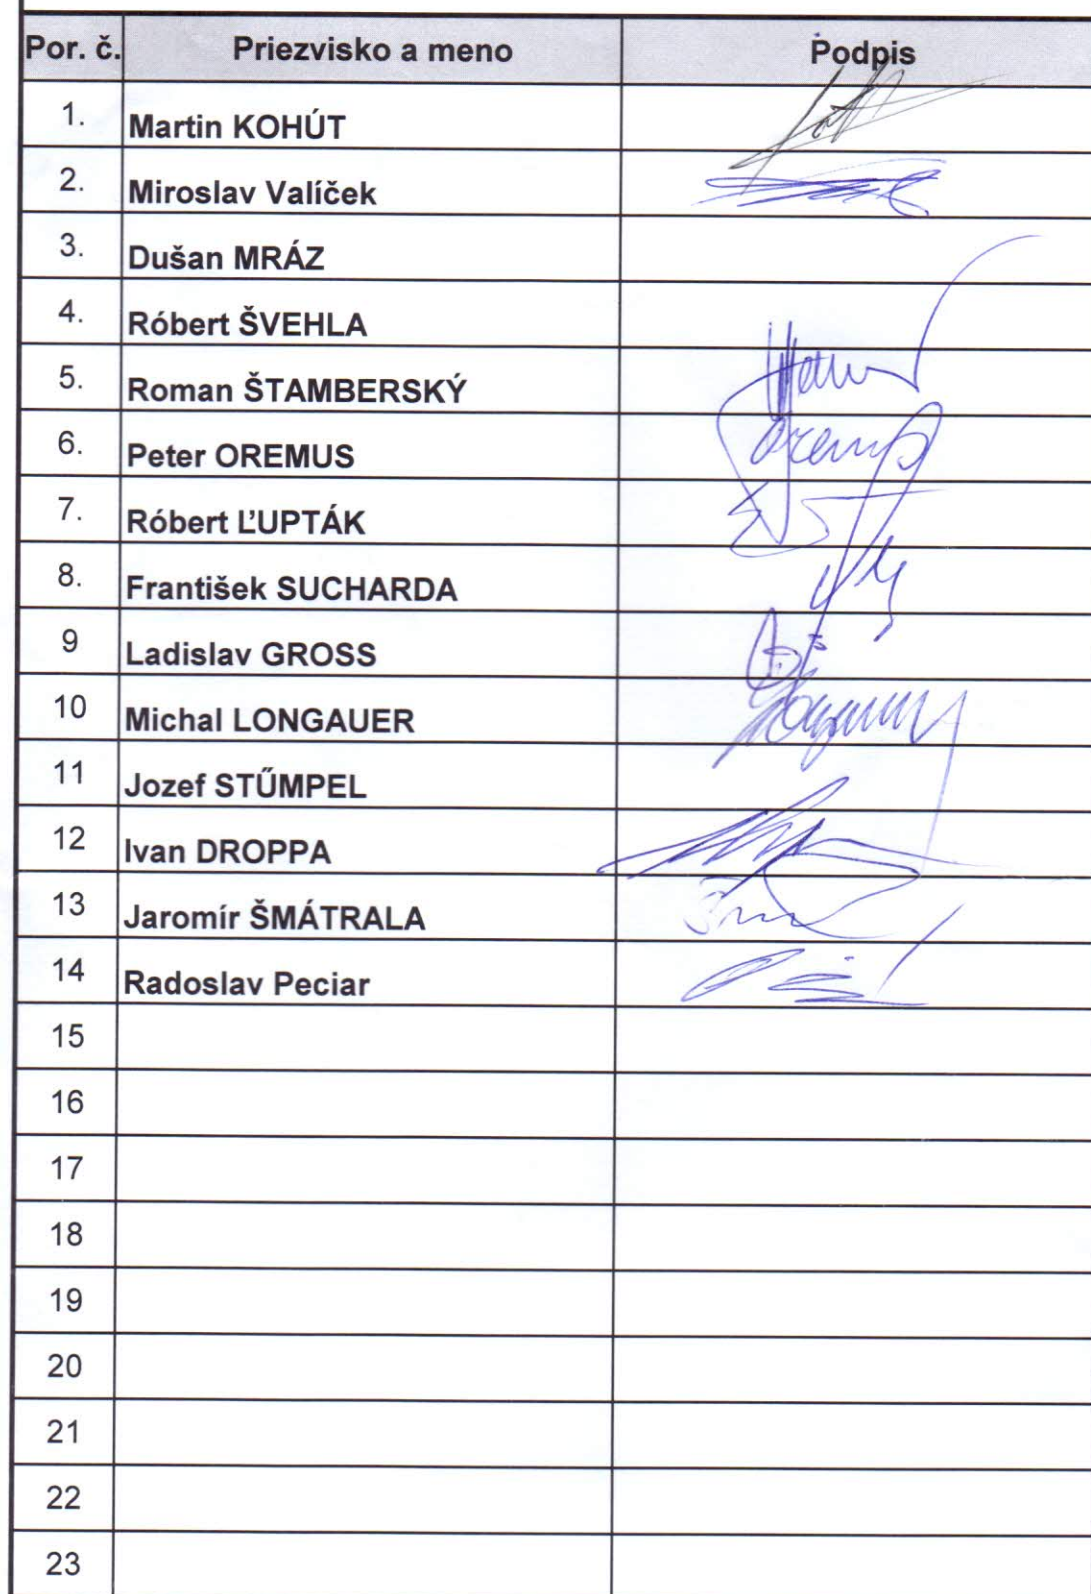 Por. č. Priezvisko a meno Podpis
1. Martin KOHÚT
2. Miroslav Valíček
3. Dušan MRÁZ
4. Róbert ŠVEHLA
5. Roman ŠTAMBERSKÝ
6. Peter OREMUS
7. Róbert ĽUPTÁK
8. František SUCHARDA
9 Ladislav GROSS
10 Michal LONGAUER
11 Jozef STŰMPEL
12 Ivan DROPPA
13 Jaromír ŠMÁTRALA
14 Radoslav Peciar
15
16
17
18
19
20
21
22
23